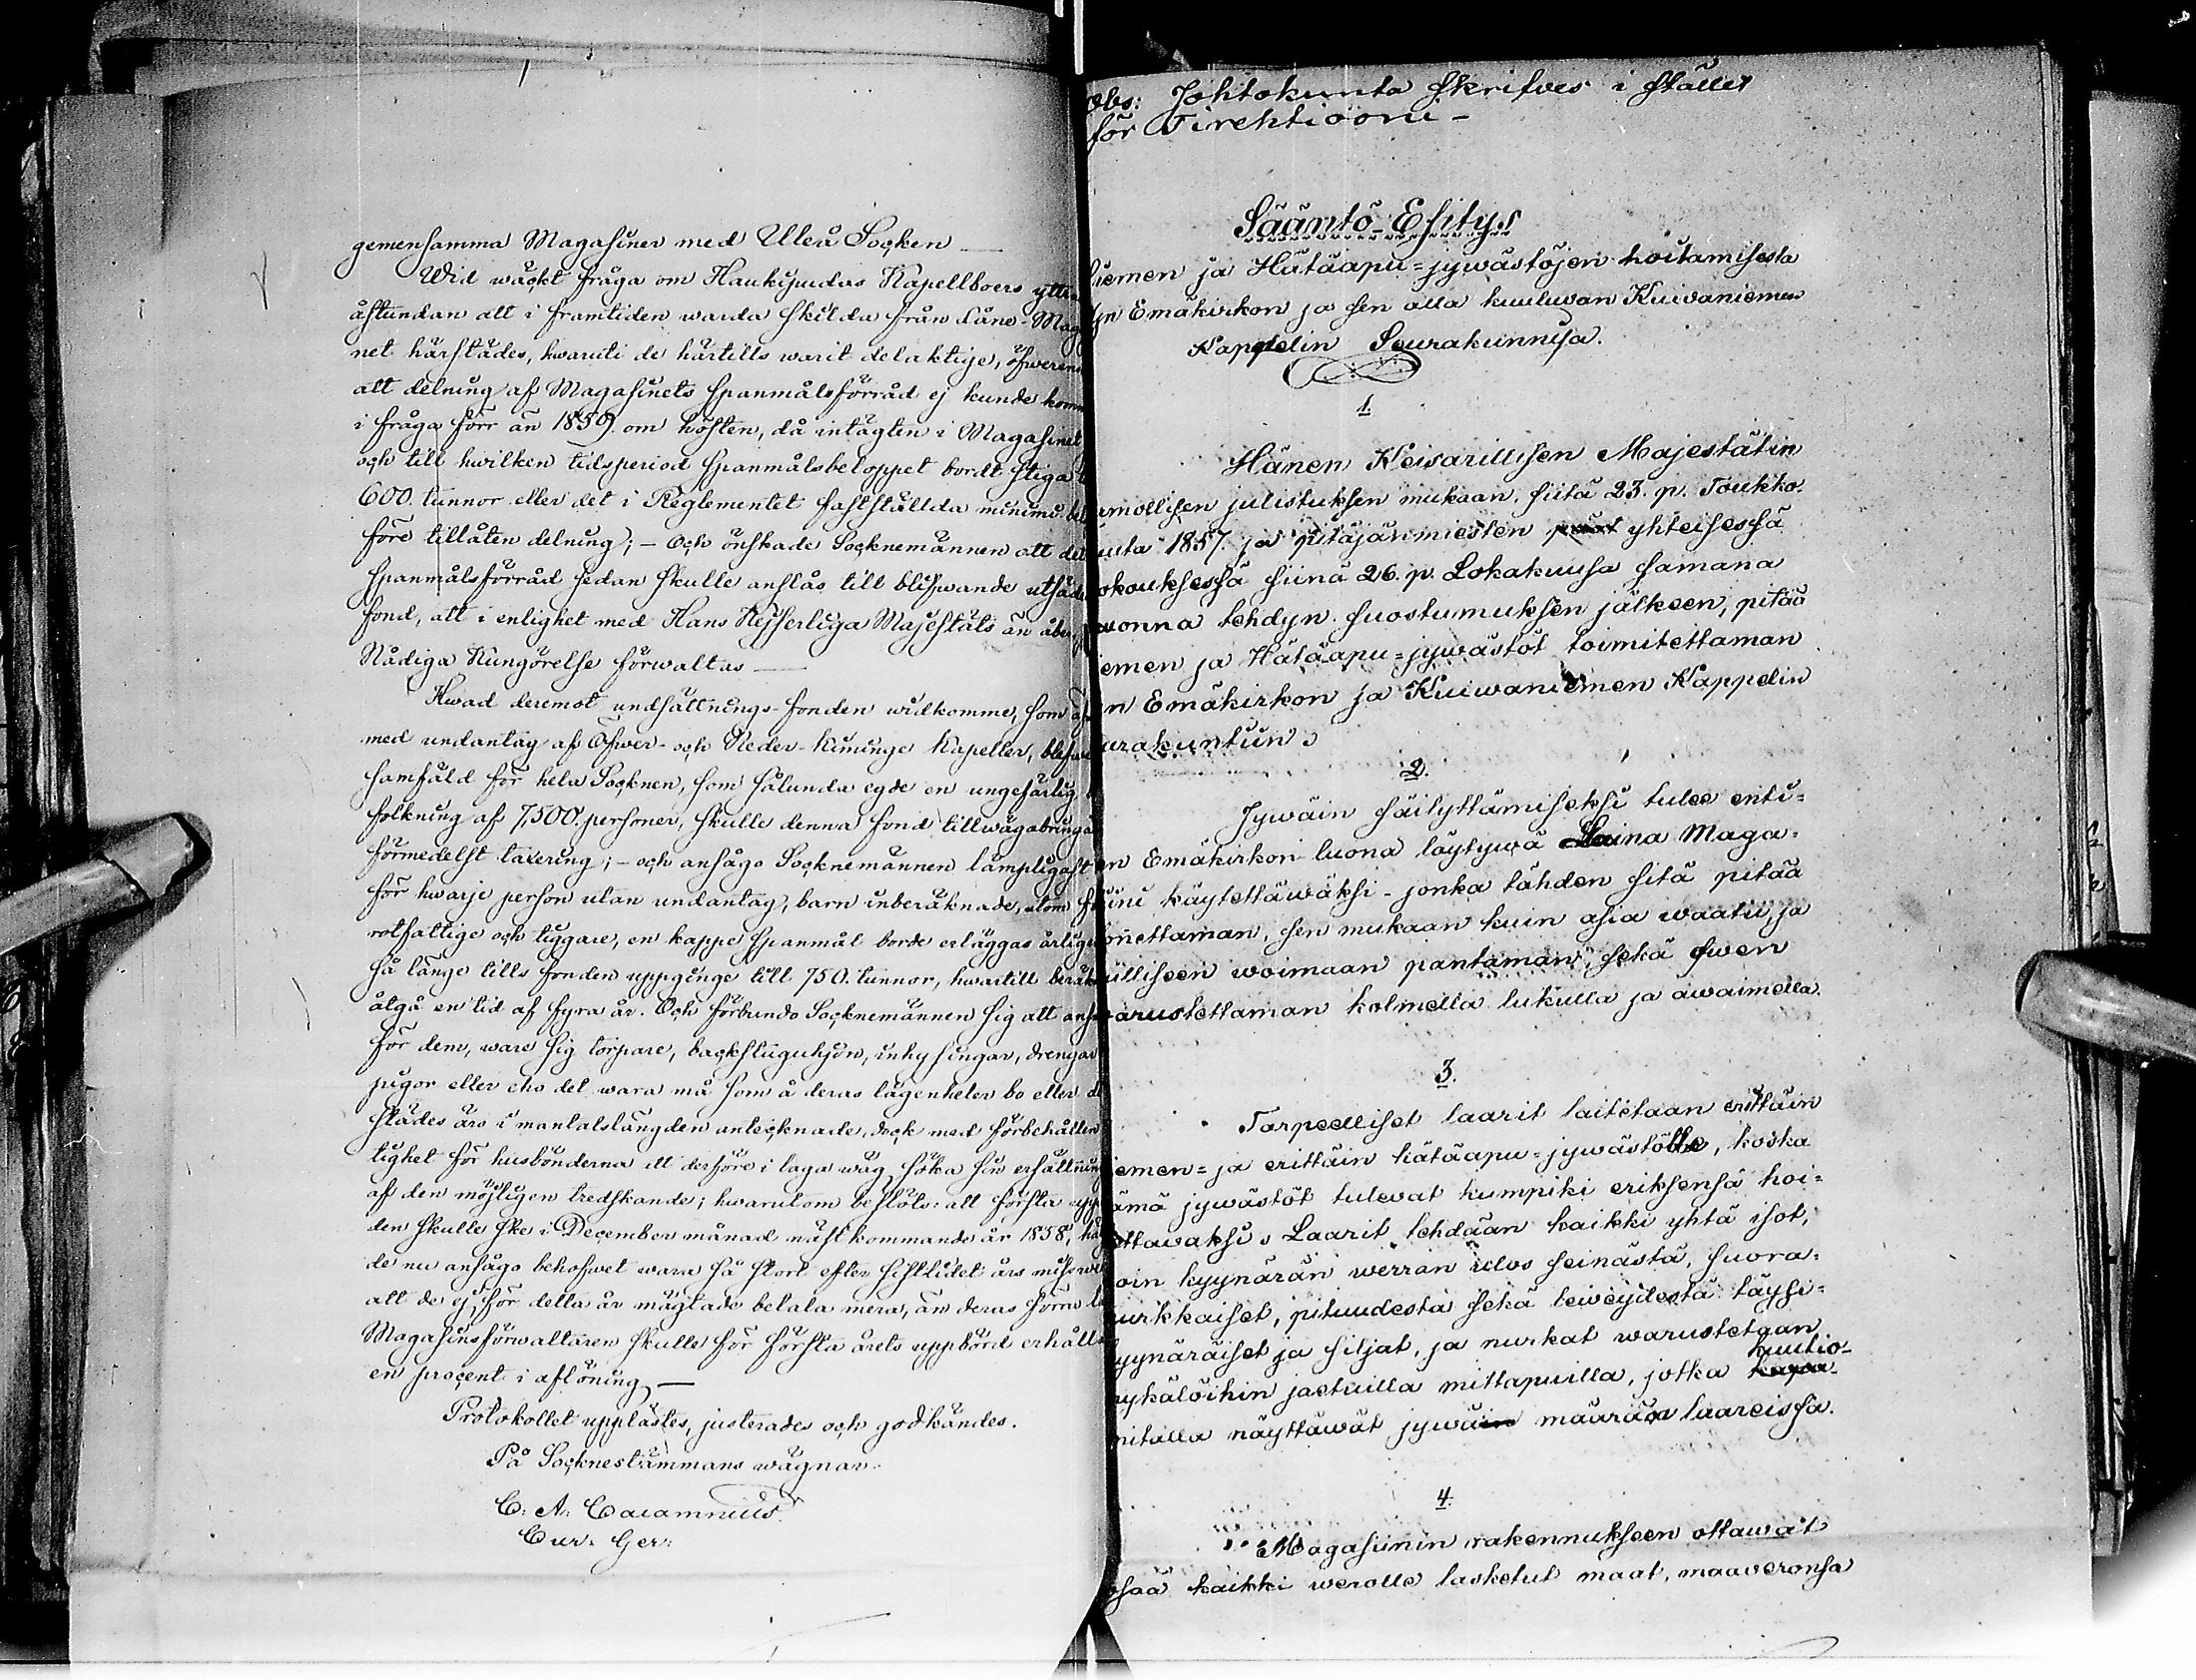 gemensamma Magasiner med Uleå Socken —
Wid wäckt fråga om Haukipudas Kapellboers yttra
åstundan att i framtiden warda skilda från Låne-Mag
net härstädes, hwaruti de härtills warit delaktige, öfwerens
att delning af Magasinets spanmålsförråd ej kunde komm
i fråga förr än 1859. om hösten, då intägten i Magasinet
och till hwilken tidsperiod spanmålsbeloppet bordt stiga
600. tunnor eller det i Reglementet fastställda minimi
före tillåten delning; — Och önskade Socknemännen att det
spanmålsförråd sedan skulle anslås till blifwande utsädes
fond, att i enlighet med Hans Kejserliga Majestäts än åber.
Nådiga Kungörelse förwaltas —
Hwad deremot undsättnings-fonden widkomme, som
med undantag af Öfwer- och Neder-Kiminge Kapeller, blefwe
samfäld för hela Socknen, som sålunda egde en ungefärlig
folkning af 7,500. personer, skulle denna fond tillwägabringas
förmedelst taxering; — och ansågo Socknemännen lämpligast
för hwarje person utan undantag, barn inberäknade, utom
rotfattige och tiggare, en kappe spanmål borde erläggas årlig
så länge tills fonden uppginge till 750. tunnor, hwartill beräk
åtgå en tid af fyra år. Och förbundo Socknemännen sig att
för dem, ware sig torpare, backstuguhjon, inhysingar, drengar
pigor eller eho det wara må som å deras lägenheter bo eller
städes äro i mantalslängden antecknade, dock med förbehållen
tighet för husbönderna att derföre i laga wäg söka sin ersättning
af den möjligen tredskande; hwarutom beslöts: att första upp
den skulle ske i December månad nästkommande år 1858,
de nu ansågo behofwet wara så stort efter sistlidet års
att de ej för detta år mägtade betala mera, än deras förra
Magasinsförwaltaren skulle för första årets uppbörd erhålla
en procent i aflöning —
Protokollet upplästes, justerades och godkändes.
På Socknestämmans wägnar
C. A. Caiamnius
Cur. Ger:
Obs: Johtokunta skrifves i stället
för Tirektiooni —
Sääntö-Esitys
iemen ja Hätäapu-jywästöjen hoitamisesta
Ijn Emäkirkon ja sen alla kuuluvan Kuivaniemen
Kappelin Seurakunnisa.
1.
Hänen Keisarillisen Majestätin
rmollisen julistuksen mukaan, siitä 23. p. Toukko-
uuta 1857. ja pitäjänmiesten yhteisessä
okouksessa siinä 26. p. Lokakuusa samana
uonna tehdyn suostumuksen jälkeen, pitää
iemen ja Hätäapu-jywästöt toimitettaman
n Emäkirkon ja Kuiwaniemen Kappelin
urakuntiin.
2.
Jywäin säilyttämiseksi tulee enti-
en Emäkirkon luona löytywä Laina Maga-
siini käytettäwäksi - jonka tähden sitä pitää
onettaman, sen mukaan kuin asia waatii, ja
illiseen woimaan pantaman, sekä
arustettaman kolmella lukulla ja awaimella.
3.
Tarpeelliset laarit laitetaan erittäin
iemen- ja erittäin hätäapu-jywästölle, koska
ämä jywästöt tulevat kumpiki eriksensä hoi-
ettawaksi. Laarit tehdään kaikki yhtä isot,
oin kyynärän werran ulos seinästä, suora-
urkkaiset, pituudesta sekä leweydestä täysi-
yynäräiset ja siljat, ja nurkat warustetaan
kuutio-
ykälöihin jaetuilla mittapuilla, jotka kapa-
mitalla näyttäwät jywäin määrän laareissa.
4.
Magasiinin rakennukseen ottawat
osaa kaikki werolle lasketut maat, maaveronsa